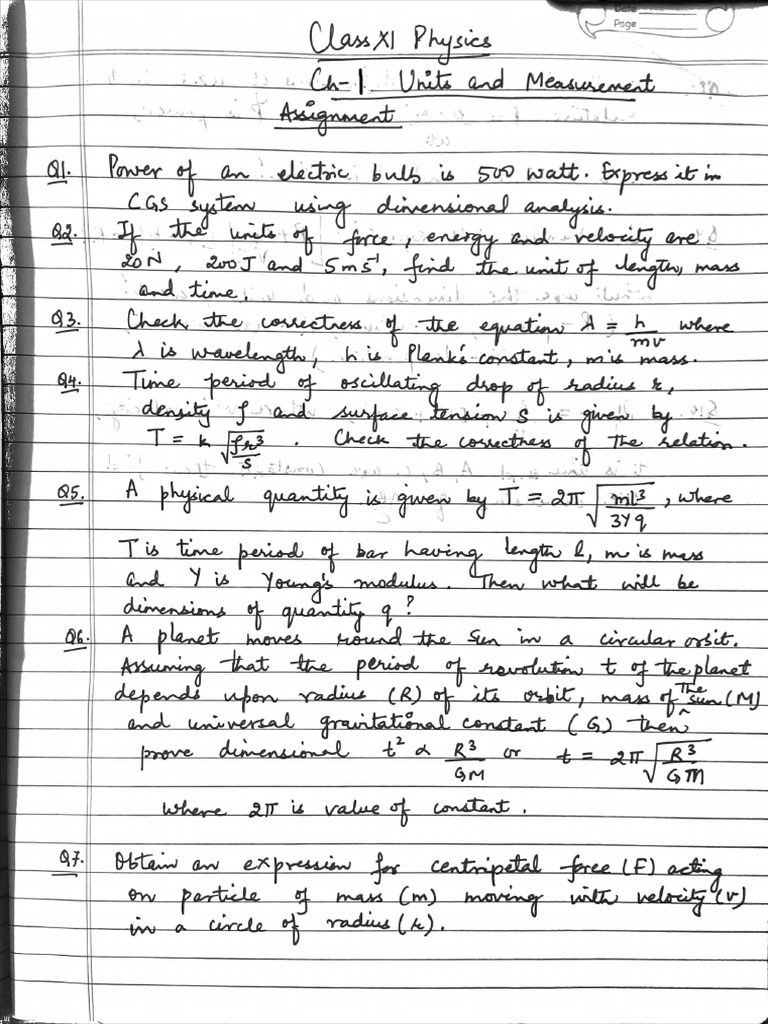 Date
Page
Class XI Physics
Ch-1 Units and Measurement
Assignment
Q1. Power of an electric bulb is 500 watt. Express it in
CGS system using dimensional analysis.
Q2. If the units of force, energy and velocity are
20N, 200J and 5ms⁻¹, find the unit of length, mass
and time.
Q3. Check the correctness of the equation λ = h/mv where
λ is wavelength, h is Plank's constant, m is mass.
Q4. Time period of oscillating drop of radius r,
density ρ and surface tension S is given by
T = k √(ρr³/S) . Check the correctness of the relation.
Q5. A physical quantity is given by T = 2π √(ml³/3Yq) , where
T is time period of bar having length l, m is mass
and Y is Young's modulus. Then what will be
dimensions of quantity q?
Q6. A planet moves round the Sun in a circular orbit.
Assuming that the period of revolution t of the planet
depends upon radius (R) of its orbit, mass of The sun (M)
and universal gravitational constant (G) then
prove dimensional t² ∝ R³/GM or t = 2π √(R³/GM)
where 2π is value of constant.
Q7. Obtain an expression for centripetal force (F) acting
on particle of mass (m) moving with velocity (v)
in a circle of radius (r).